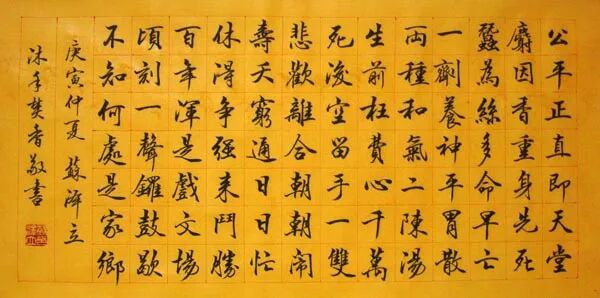 公平正直即天堂
麝因香重身先死
蠶為絲多命早亡
一劑養神平胃散
両種和氣二陳湯
生前枉費心千萬
死後空留手一雙
悲歡離合朝朝鬧
壽夭窮通日日忙
休得爭强來鬥勝
百年渾是戲文場
頃刻一聲鑼鼓歇
不知何處是家鄉
庚寅仲夏 蘇立
沐手焚香敬書